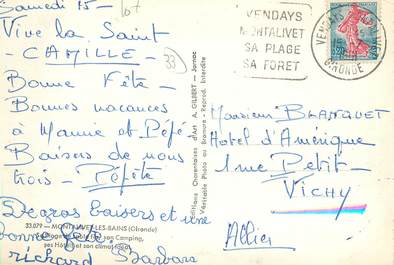 Samedi 15 -
Vive la Saint
- CAMILLE -
Bonne Fête -
Bonnes vacances
à Mamie et Pépé
Baisers de nous
trois - Pépète
De gros baisers et une
bonne fête
richard Barbara
33.079 - MONTALIVET-LES-BAINS (Gironde)
son Camping,
ses Hôtels et son climat idéal
Editions Charentaises d'Art A. GILBERT - Jarnac
Véritable Photo au Bromure - Reprod. Interdite
33
VENDAYS
MONTALIVET
SA PLAGE
SA FORET
VENDAYS
GIRONDE
Monsieur BLANQUET
Hotel d'Amérique
1 rue Petit
VICHY
Allier